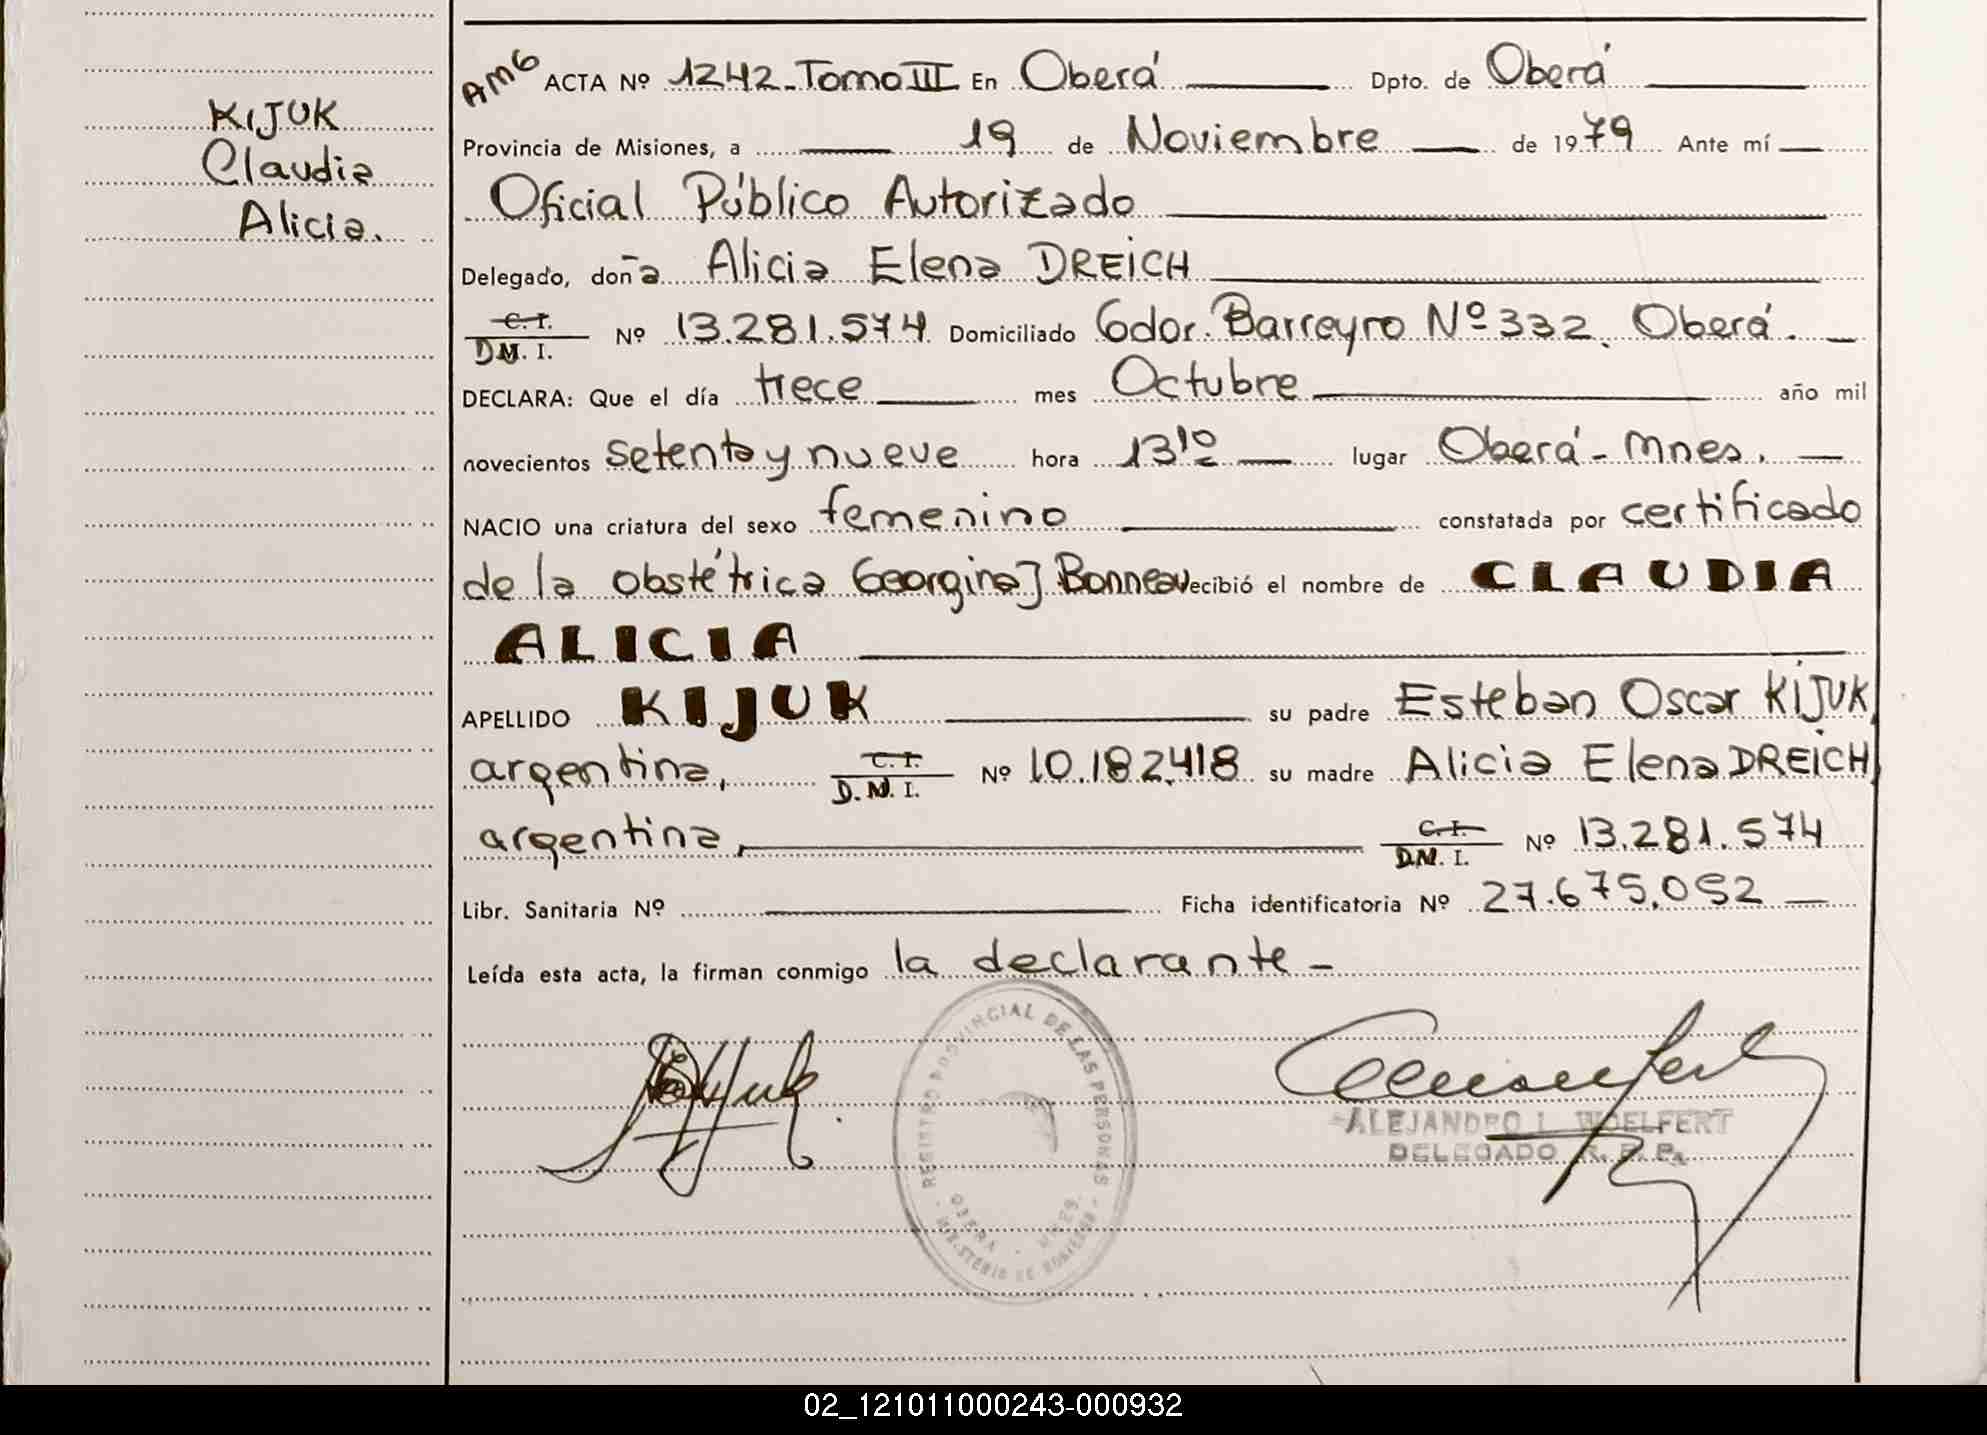 KIJUK
Claudia
Alicia.
AMG ACTA Nº 1242-Tomo III En Oberá Dpto. de Oberá
Provincia de Misiones, a 19 de Noviembre de 1979 Ante mí
Oficial Público Autorizado
Delegado, doña Alicia Elena DREICH
C. I.
D.N. I. Nº 13.281.574 Domiciliado Gdor. Barreyro Nº 332. Oberá.
DECLARA: Que el día trece mes Octubre año mil
novecientos setenta y nueve hora 13¹⁰ lugar Oberá - Mnes.
NACIO una criatura del sexo femenino constatada por certificado
de la obstétrica Georgina J Bonneau recibió el nombre de CLAUDIA
ALICIA
APELLIDO KIJUK su padre Esteban Oscar KIJUK,
argentina, C. I. D.N. I. Nº 10.182.418 su madre Alicia Elena DREICH,
argentina, C. I. D.N. I. Nº 13.281.574
Libr. Sanitaria Nº Ficha identificatoria Nº 27.675.052
Leída esta acta, la firman conmigo la declarante -
REGISTRO PROVINCIAL DE LAS PERSONAS
OBERA - MNES.
MINISTERIO DE GOBIERNO
ALEJANDRO L. WOELFERT
DELEGADO R. P. P.
02_121011000243-000932